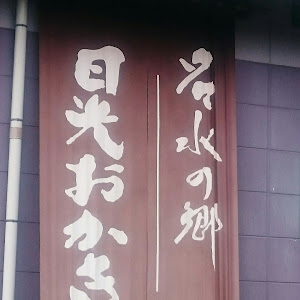 名水の郷
日光おかき